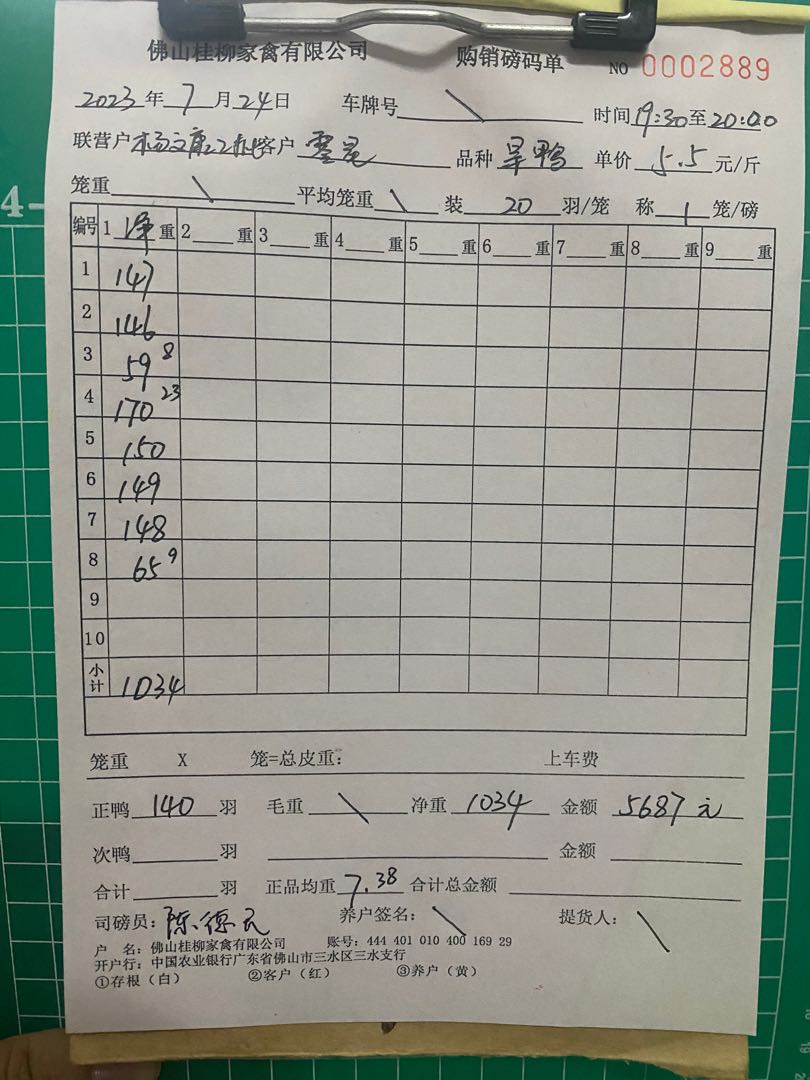 佛山桂柳家禽有限公司 购销磅码单 NO 0002889
2023年7月24日 车牌号 \ 时间19:30至20:00
联营户杨文 客户 品种 旱鸭 单价 5.5 元/斤
笼重 \ 平均笼重 \ 装 20 羽/笼 称 1 笼/磅
编号 1 净 重 2 重 3 重 4 重 5 重 6 重 7 重 8 重 9 重
1 147
2 146
3 59 8
4 170 23
5 150
6 149
7 148
8 65 9
9
10
小计 1034
笼重 X 笼=总皮重: 上车费
正鸭 140 羽 毛重 \ 净重 1034 金额 5687 元
次鸭 羽 金额
合计 羽 正品均重 7.38 合计总金额
司磅员: 陈德 养户签名: \ 提货人: \
户 名: 佛山桂柳家禽有限公司 账号: 444 401 010 400 169 29
开户行: 中国农业银行广东省佛山市三水区三水支行
①存根(白) ②客户(红) ③养户(黄)
4